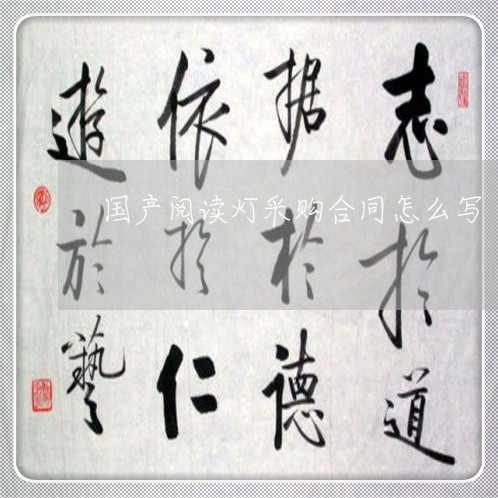 志扵道
据於德
依扵仁
遊於藝
国产阅读灯采购合同怎么写